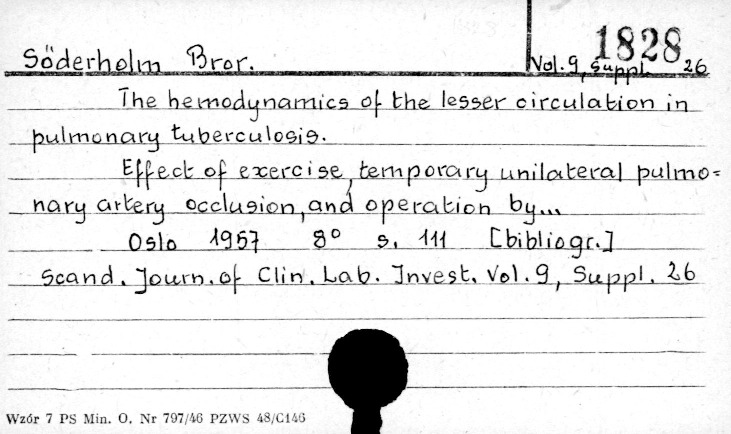 1828
Söderholm Bror. Vol. 9, Suppl. 26
The hemodynamics of the lesser circulation in
pulmonary tuberculosis.
Effect of exercise, temporary unilateral pulmo=
nary artery occlusion, and operation by...
Oslo 1957 8° s. 111 [bibliogr.]
Scand. Journ. of Clin. Lab. Invest. Vol. 9, Suppl. 26
Wzór 7 PS Min. O. Nr 797/46 PZWS 48/C146